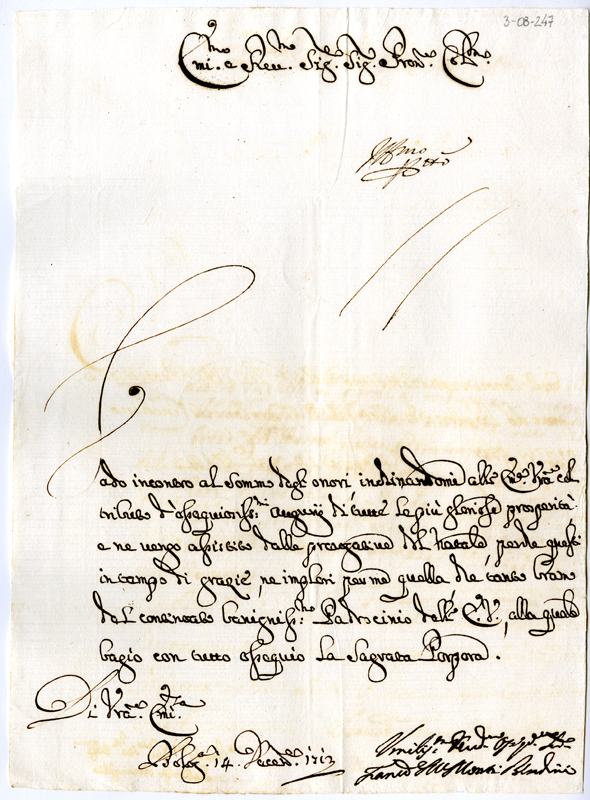 3-08-247
Emi.mo e Reu.mo Sig.re Sig.re Pron.e Col.mo
Vado incontro al sommo degl'onori inchinandomi all'Em.za V.ra col
tributo d'ossequiosiss.mi augurij di tutte le più gloriose prosperità
e ne vengo assistito dalle prerogative del Natale, perche questi
in tempo di grazie, ne implori per me quella che tanto bramo
del continuato benigniss.mo Padrocinio dell'E.V., alla quale
bagio con tutto ossequio la Sagrata Porpora.
Di V.ra Emi.za
Bolog.a 14. Decem.e 1713
Umiliss.mo
Franc.o Monti Bendini